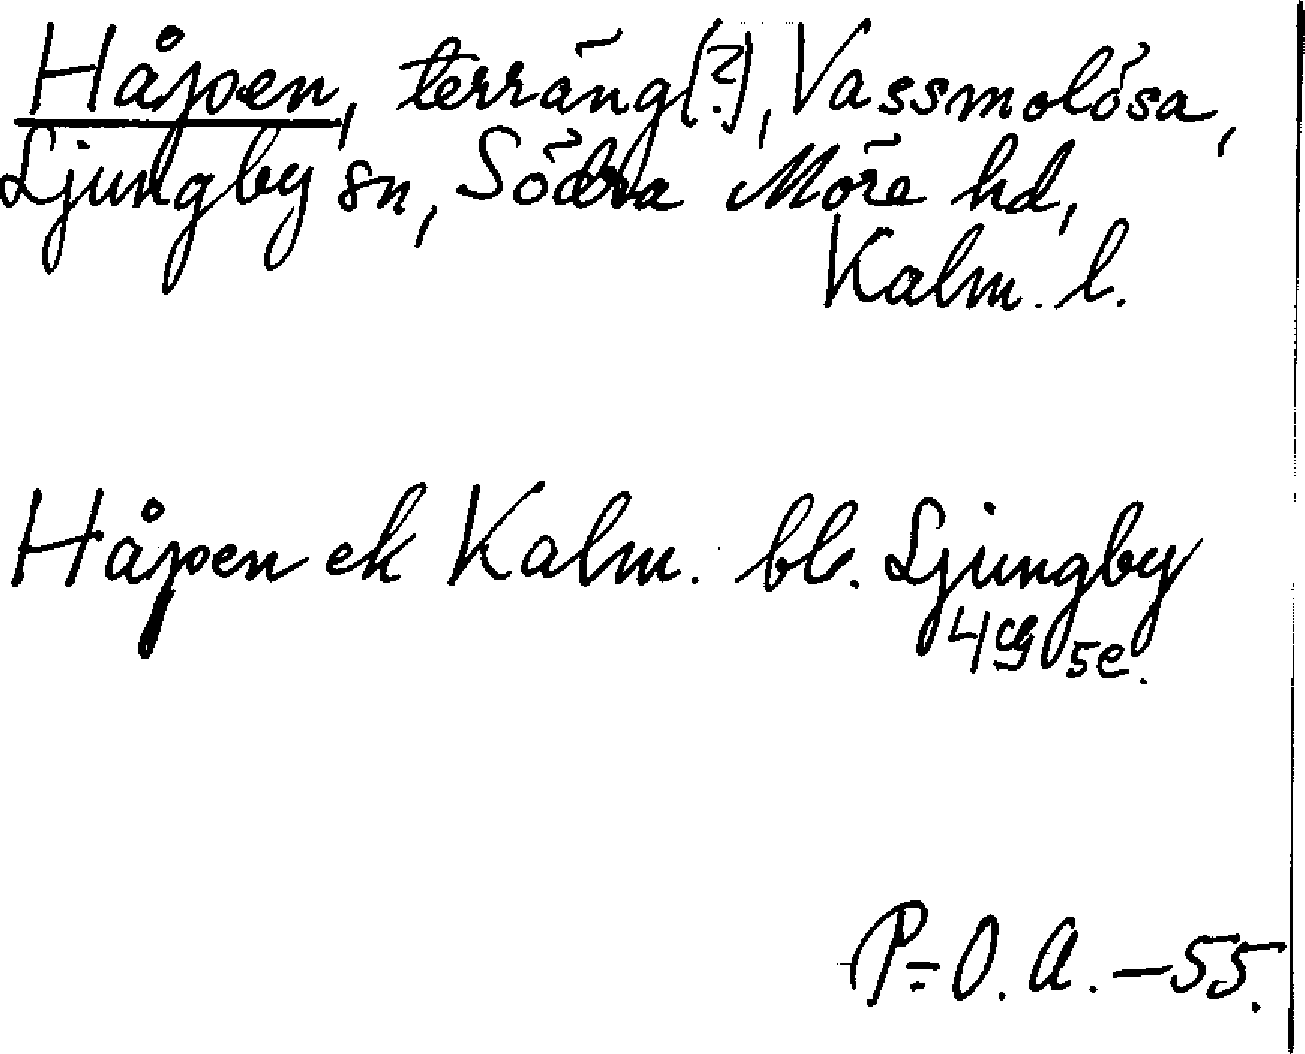 Håpen, terräng[?], Vassmolösa,
Ljungby sn, Södra Möre hd,
Kalm. l.
Håpen ek Kalm. bl. Ljungby
4g 5e.
P.-O. A. -55.